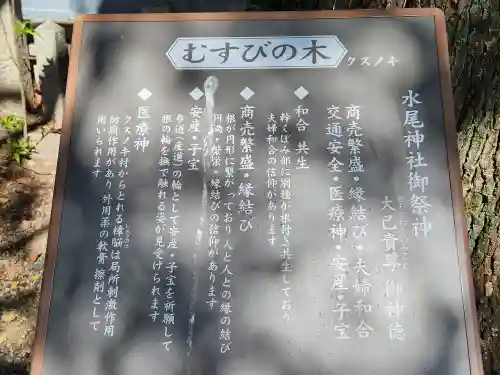 むすびの木 クスノキ
水尾神社御祭神
大己貴尊 御神徳
商売繁盛・縁結び・夫婦和合
交通安全・医療神・安産・子宝
◆和合 共生
幹くぼみ部に別種が根付き共生しており
夫婦和合の信仰があります
◆商売繁盛・縁結び
根が円形に繋がっており 人と人との縁の結び
円満・繁栄・縁結びの信仰があります
◆安産・子宝
参道(産道)の輪として安産・子宝を祈願して
根の輪を撫で触れる姿が見受けられます
◆医療神
クスノキ材からとれる樟脳は局所刺激作用
防腐作用があり 外用薬の軟膏 擦剤として
用いられます